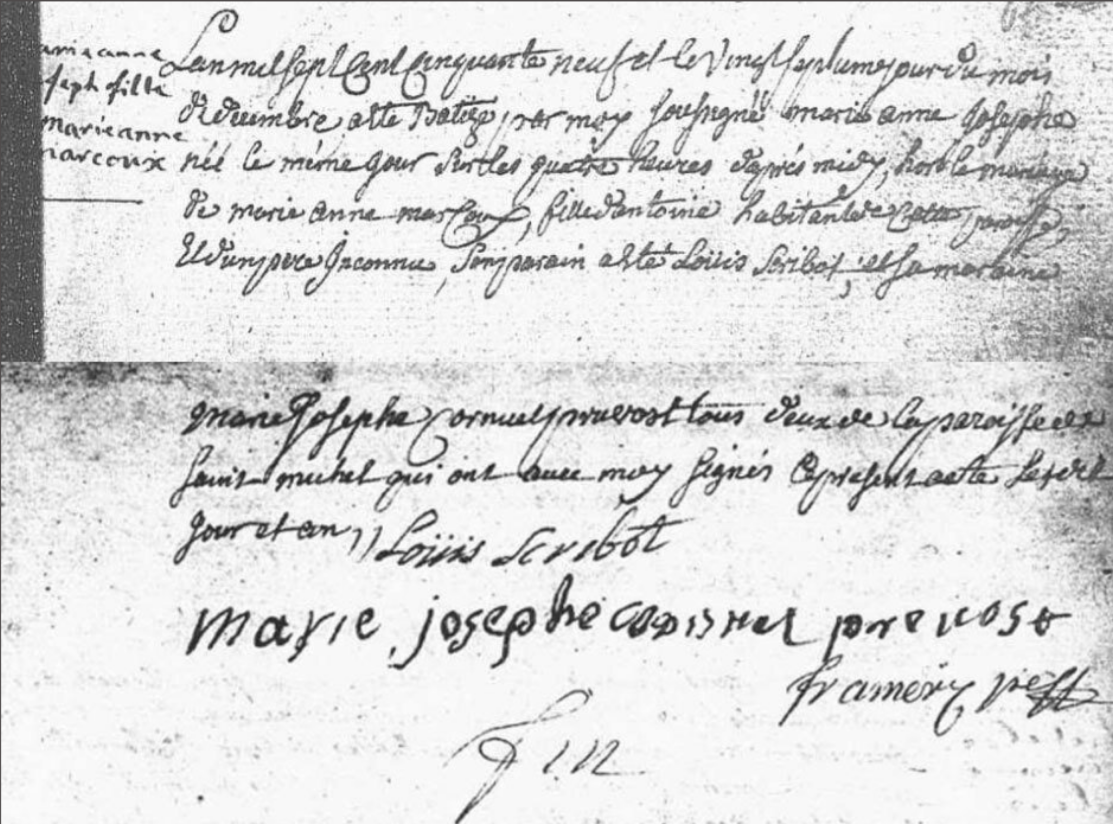 ame anne
seph fille
marieanne
marcoux
Lan mil sept Cent Cinquante neuf et le Vingt septieme jour du mois
de decembre a été Batizé par moy soussigné marie anne Josephe
néé le méme jour sur les quatre heures d'aprés midy, hors le mariage
de marie anne marcoux, fille d'antoine habitante de Cette paroisse,
Et d'un pere Inconnu, son parain a été Louis Scribot, et sa maraine
marie Josephe Cornuel prevost tous deux de la paroisse de
saint michel qui ont avec moy signés le present acte lesdit
jour et an // Louis Scribot
marie josephe cornuel prevost
framery
fin